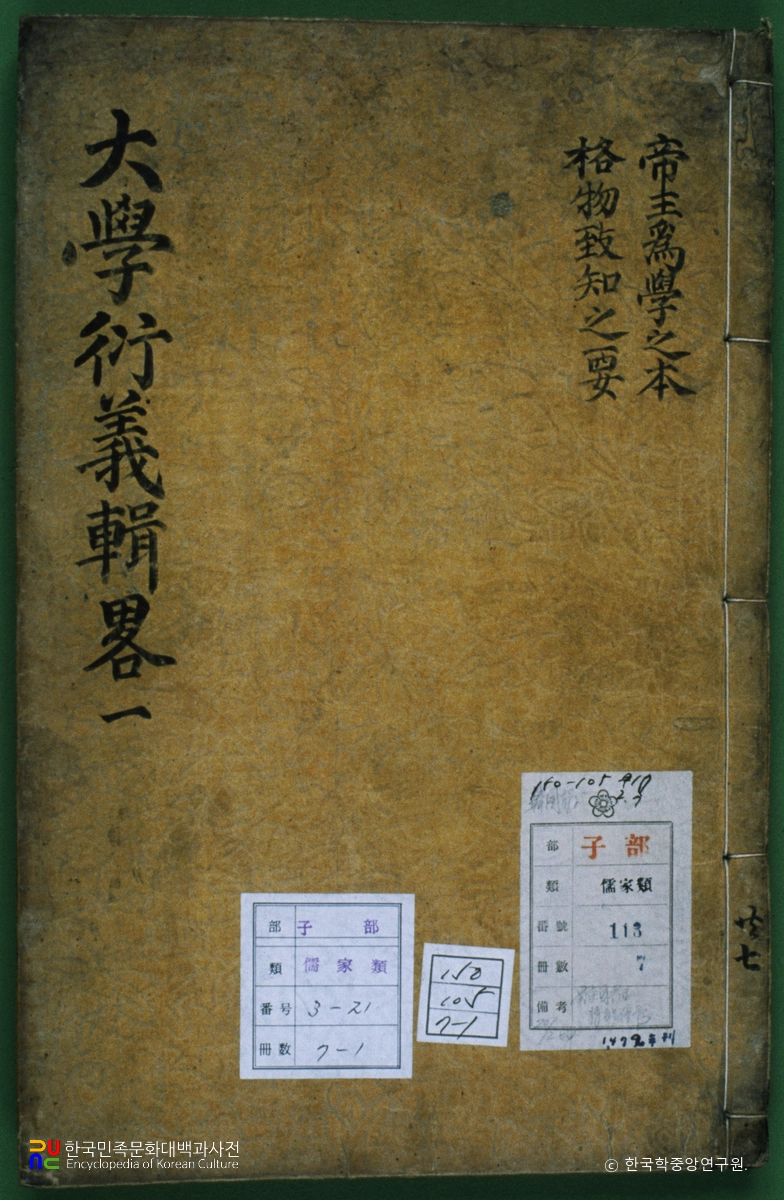 帝王爲學之本
格物致知之要
大學衍義輯畧一
共七
150-105
子部
部 子部
類 儒家類
番號 113
冊數 7
備考
部 子部
類 儒家類
番号 3-21
冊数 7-1
150
105
7-1
한국민족문화대백과사전
Encyclopedia of Korean Culture
© 한국학중앙연구원.